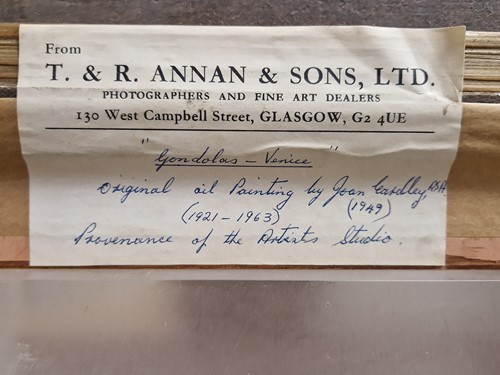 From
T. & R. ANNAN & SONS, LTD.
PHOTOGRAPHERS AND FINE ART DEALERS
130 West Campbell Street, GLASGOW, G2 4UE
"Gondolas - Venice"
Original oil Painting by Joan Eardley, RSA
(1921-1963) (1949)
Provenance of the Artists Studio.